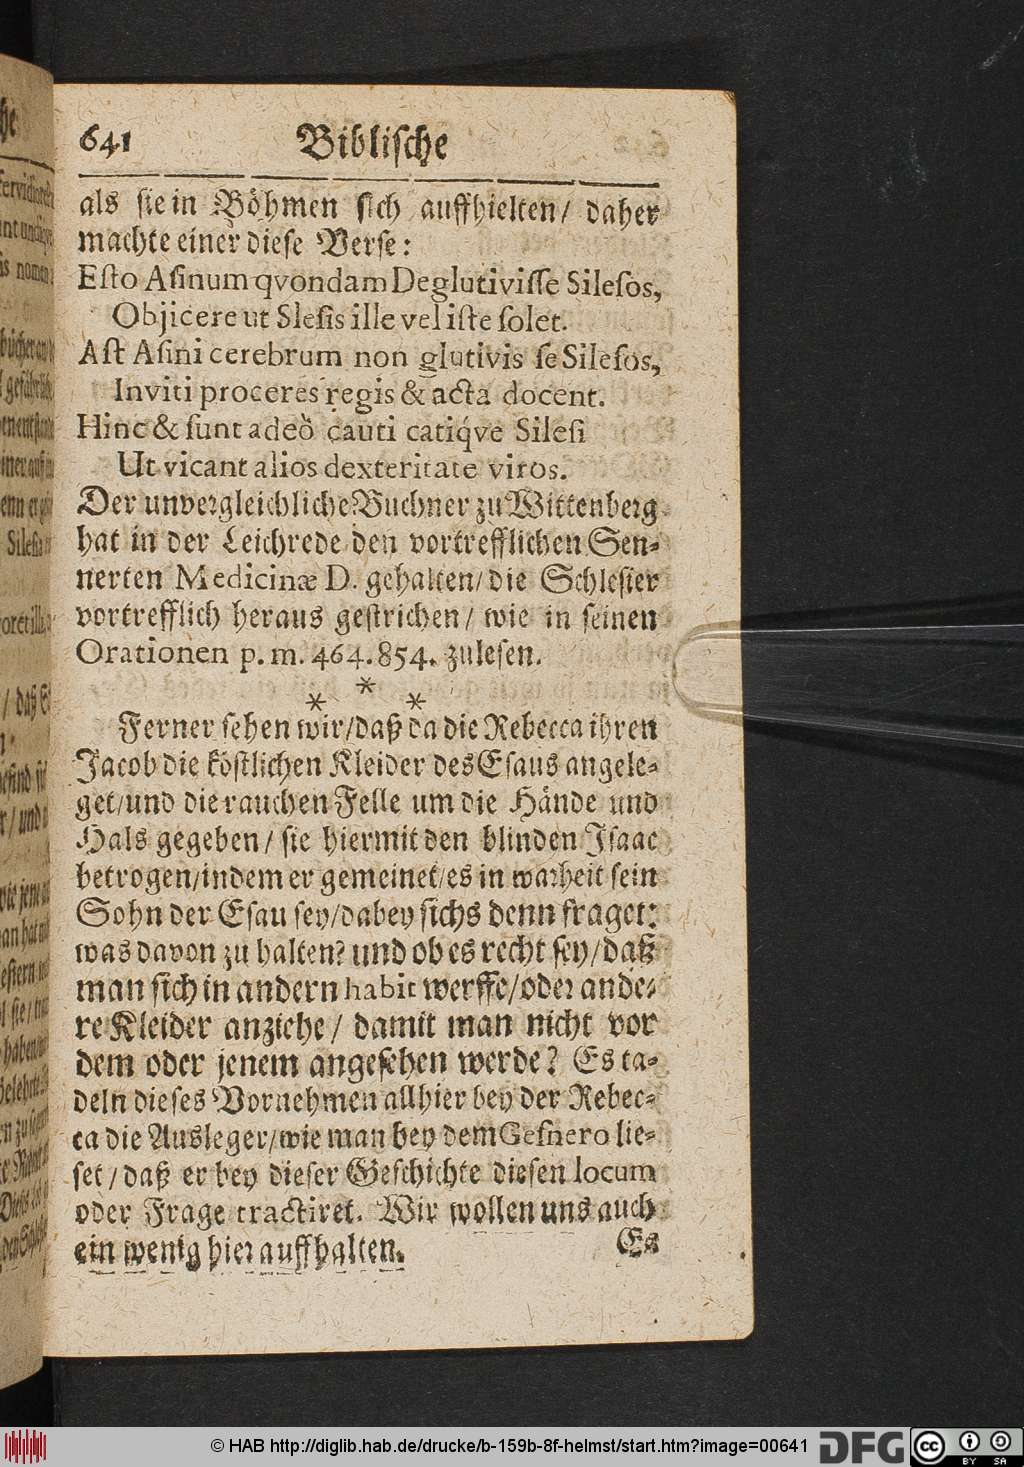 641 Biblische
als sie in Böhmen sich auffhielten/ daher
machte einer diese Verse:
Esto Asinum qvondam Deglutivisse Silesos,
Objicere ut Slesis ille vel iste solet.
Ast Asini cerebrum non glutivis se Silesos,
Inviti proceres regis & acta docent.
Hinc & sunt adeò cauti catiq́ve Silesi
Ut vicant alios dexteritate viros.
Der unvergleichliche Buchner zu Wittenberg
hat in der Leichrede den vortrefflichen Sen-
nerten Medicinæ D. gehalten/ die Schlesier
vortrefflich heraus gestrichen/ wie in seinen
Orationen p. m. 464. 854. zulesen.
* * *
Ferner sehen wir/ daß da die Rebecca ihren
Jacob die köstlichen Kleider des Esaus angele-
get/ und die rauchen Felle um die Hände und
Hals gegeben/ sie hiermit den blinden Isaac
betrogen/ indem er gemeinet/ es in warheit sein
Sohn der Esau sey/ dabey sichs denn fraget:
was davon zu halten? und ob es recht sey/ daß
man sich in andern habit werffe/ oder ande-
re Kleider anziehe/ damit man nicht vor
dem oder jenem angesehen werde? Es ta-
deln dieses Vornehmen allhier bey der Rebec-
ca die Ausleger/ wie man bey dem Gesnero lie-
set/ daß er bey dieser Geschichte diesen locum
oder Frage tractiret. Wir wollen uns auch
ein wenig hier auffhalten.
Es
© HAB http://diglib.hab.de/drucke/b-159b-8f-helmst/start.htm?image=00641
DFG
cc BY SA